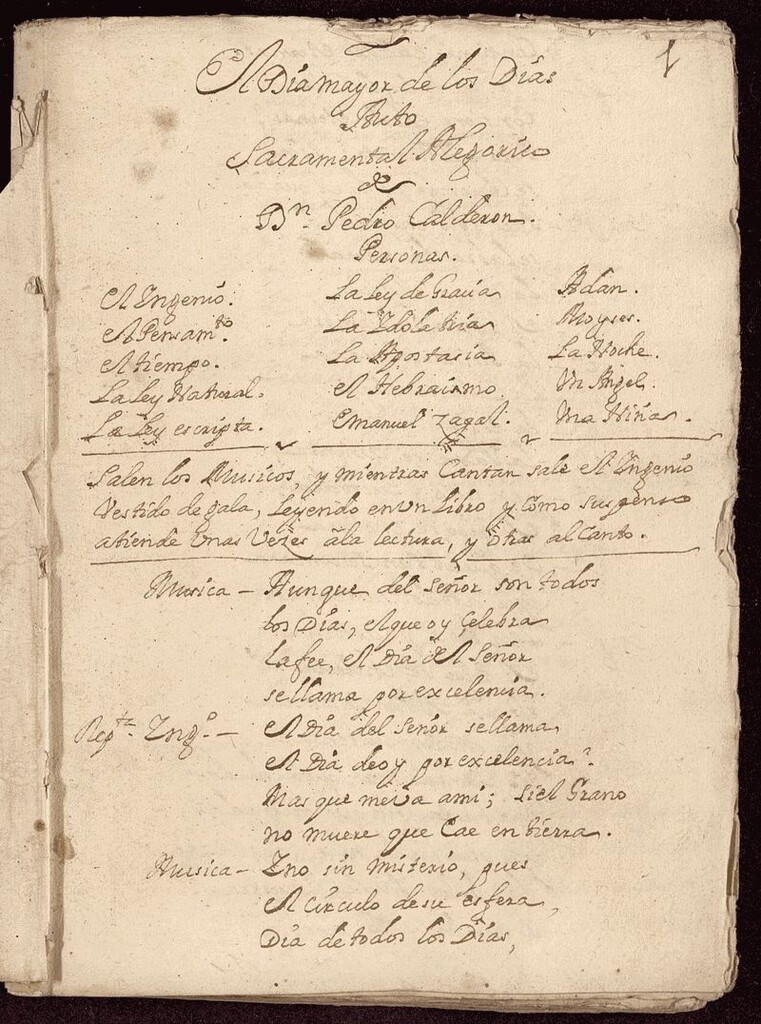 1
El Dia mayor de los Dias
Auto
Sacramental Alegorico
de
Dn. Pedro Calderon.
Personas.
El Ingenio. La Ley de Gracia Adan.
el Pensamto. La Idolatria Moyses.
el tiempo. La Apostasia La Noche.
La Ley Natural. el Hebraismo Un Angel.
La Ley escripta. Emanuel Zagal. Una Niña.
Salen los Musicos, y mientras Cantan sale el Ingenio
Vestido de gala, Leyendo en un Libro y como suspenso
atiende Unas Vezes àla lectura, y otras al Canto.
Musica - Aunque del Señor son todos
los Dias, el que oy Çelebra
la fee, el Dia del Señor
se llama por excelencia.
Repte. Ingo. - el Dia del Señor se llama
el Dia de oy por excelencia?
Mas que me va a mi; si el Grano
no muere que Cae en tierra.
Musica - Y no sin misterio, pues
el circulo de su esfera,
Dia de todos los Dias,